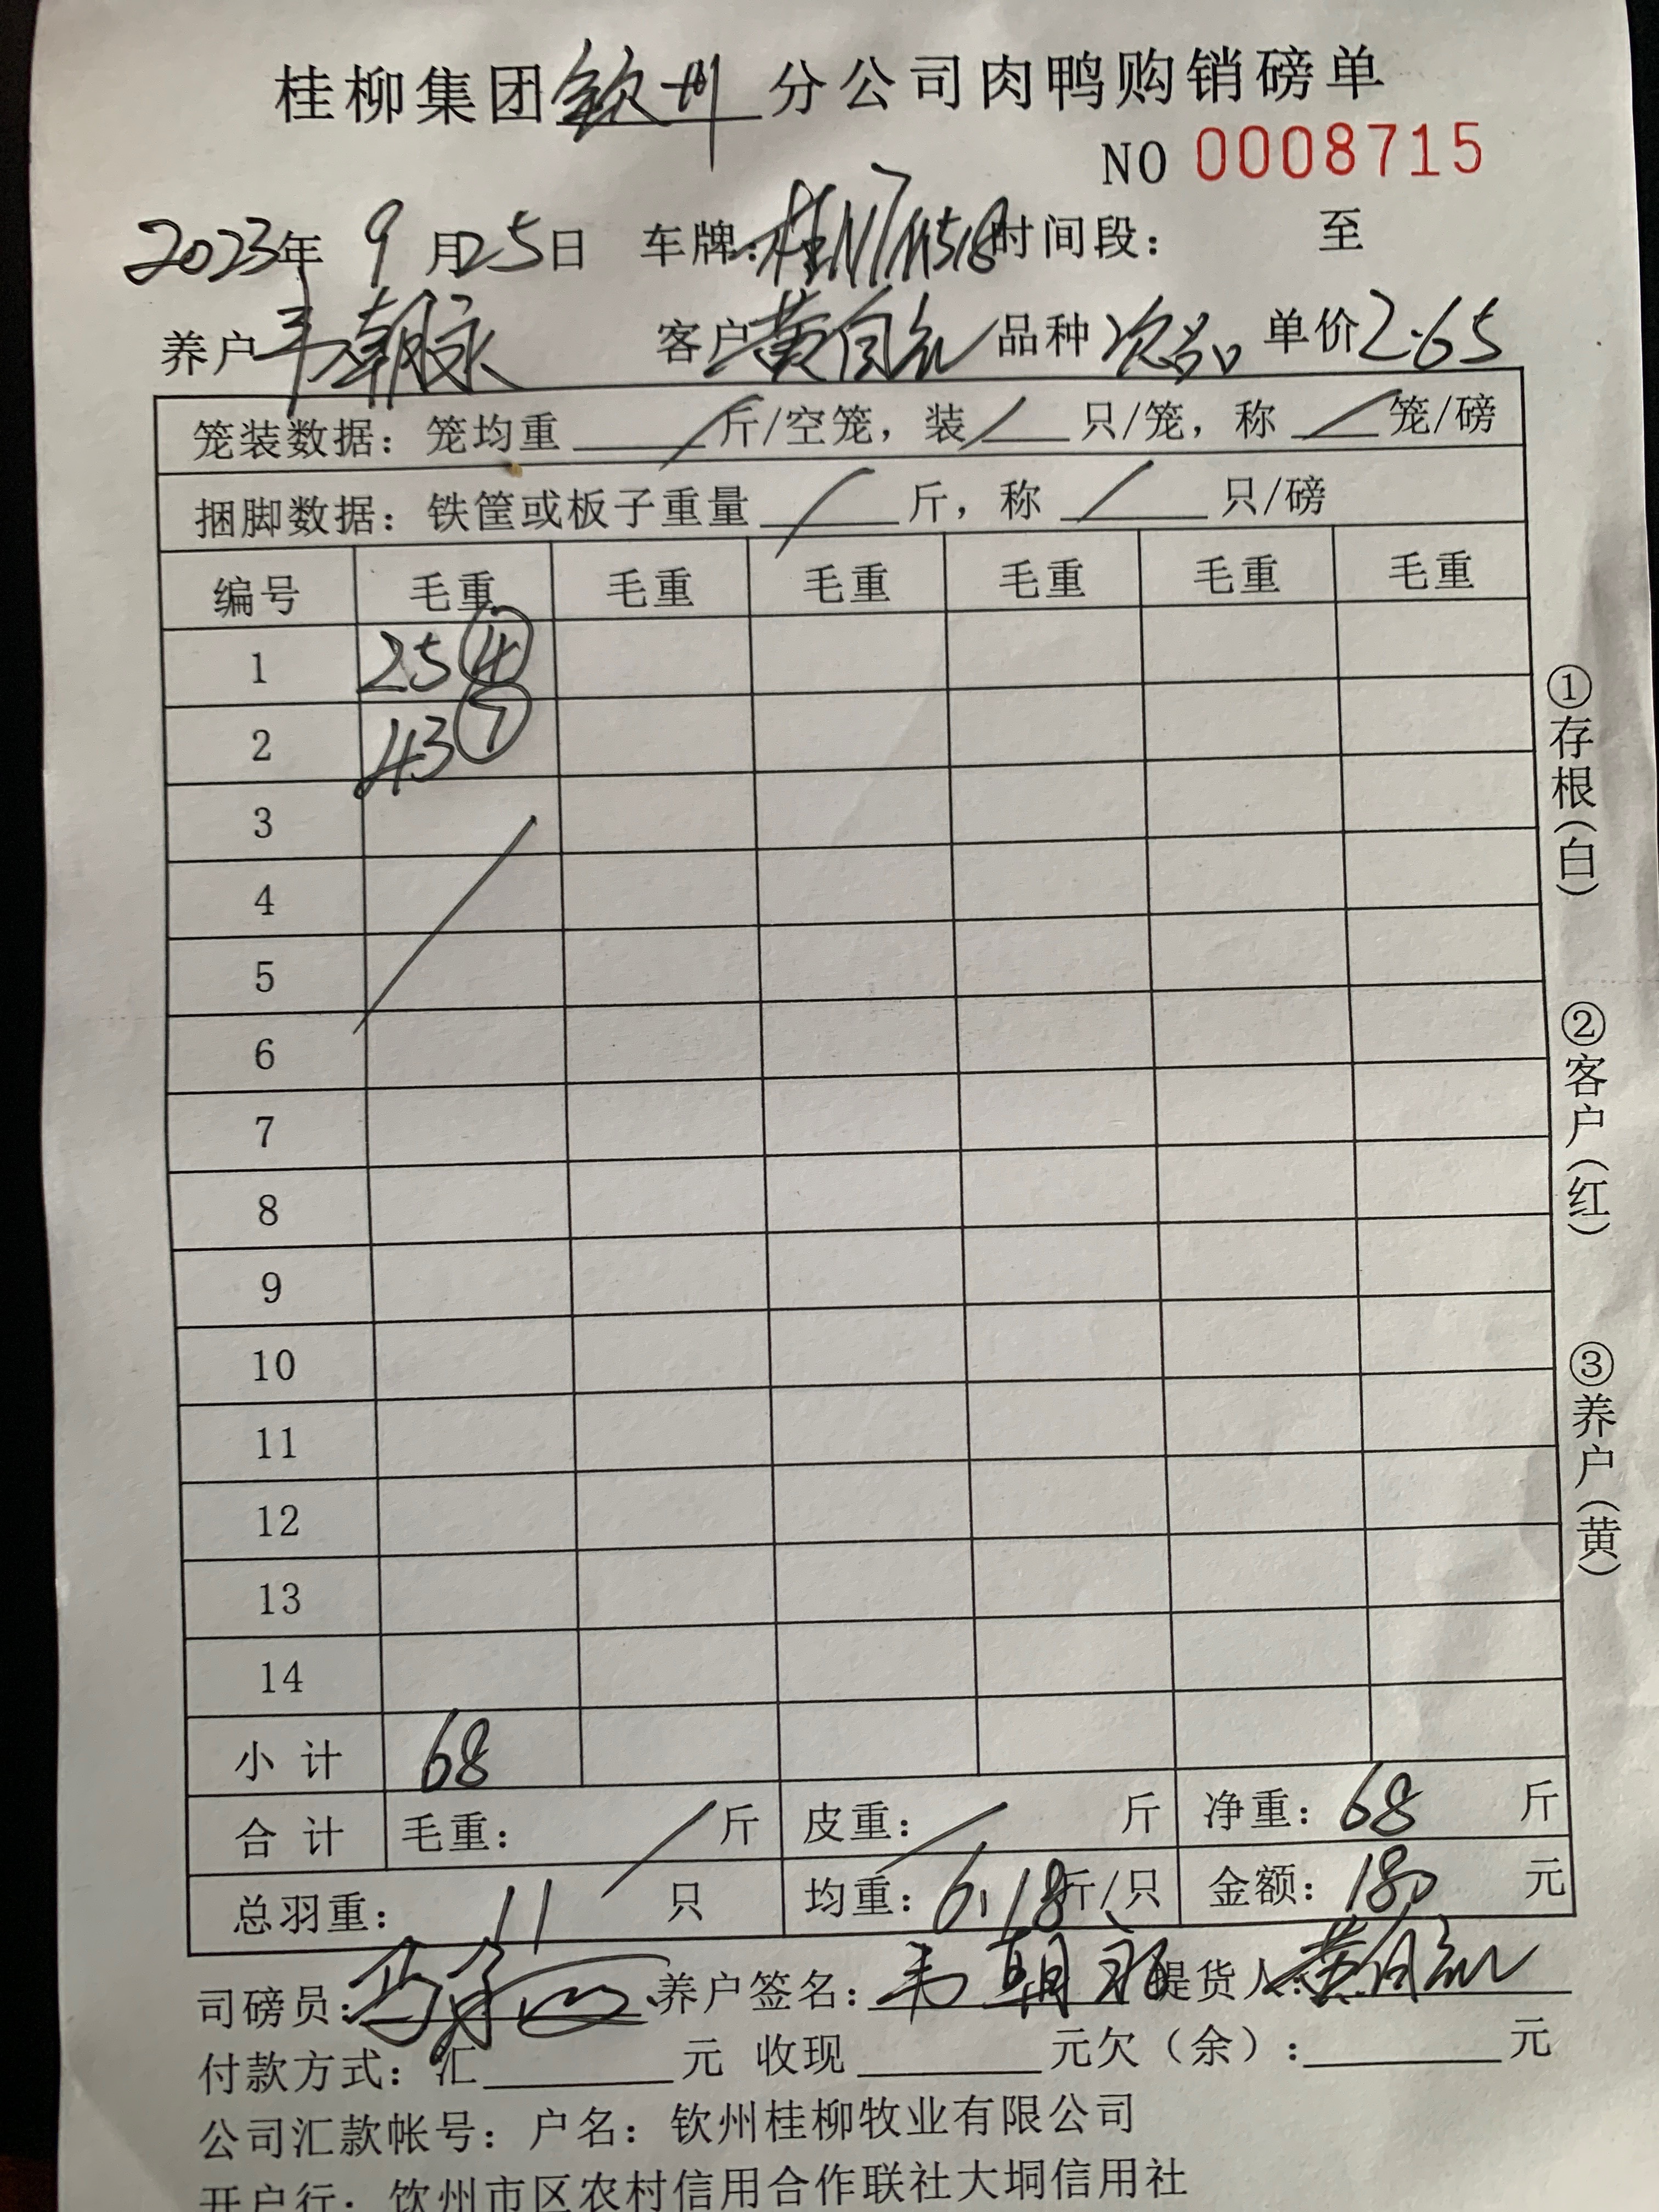 桂柳集团钦州分公司肉鸭购销磅单
NO 0008715
2023年 9月25日 车牌：桂N 时间段： 至
养户韦朝永 客户黄自 品种次品 单价2.65
笼装数据：笼均重 / 斤/空笼，装 / 只/笼，称 / 笼/磅
捆脚数据：铁筐或板子重量 / 斤，称 / 只/磅
编号 毛重 毛重 毛重 毛重 毛重 毛重
1 25 ④
2 43 ⑦
3
4
5
6
7
8
9
10
11
12
13
14
小计 68
合计 毛重： / 斤 皮重： / 斤 净重：68 斤
总羽重： 11 只 均重：6.18斤/只 金额：180 元
司磅员： 养户签名：韦朝永 提货人：黄自
付款方式：汇 元 收现 元欠（余）： 元
公司汇款帐号：户名：钦州桂柳牧业有限公司
开户行：钦州市区农村信用合作联社大垌信用社
①存根（白）
②客户（红）
③养户（黄）